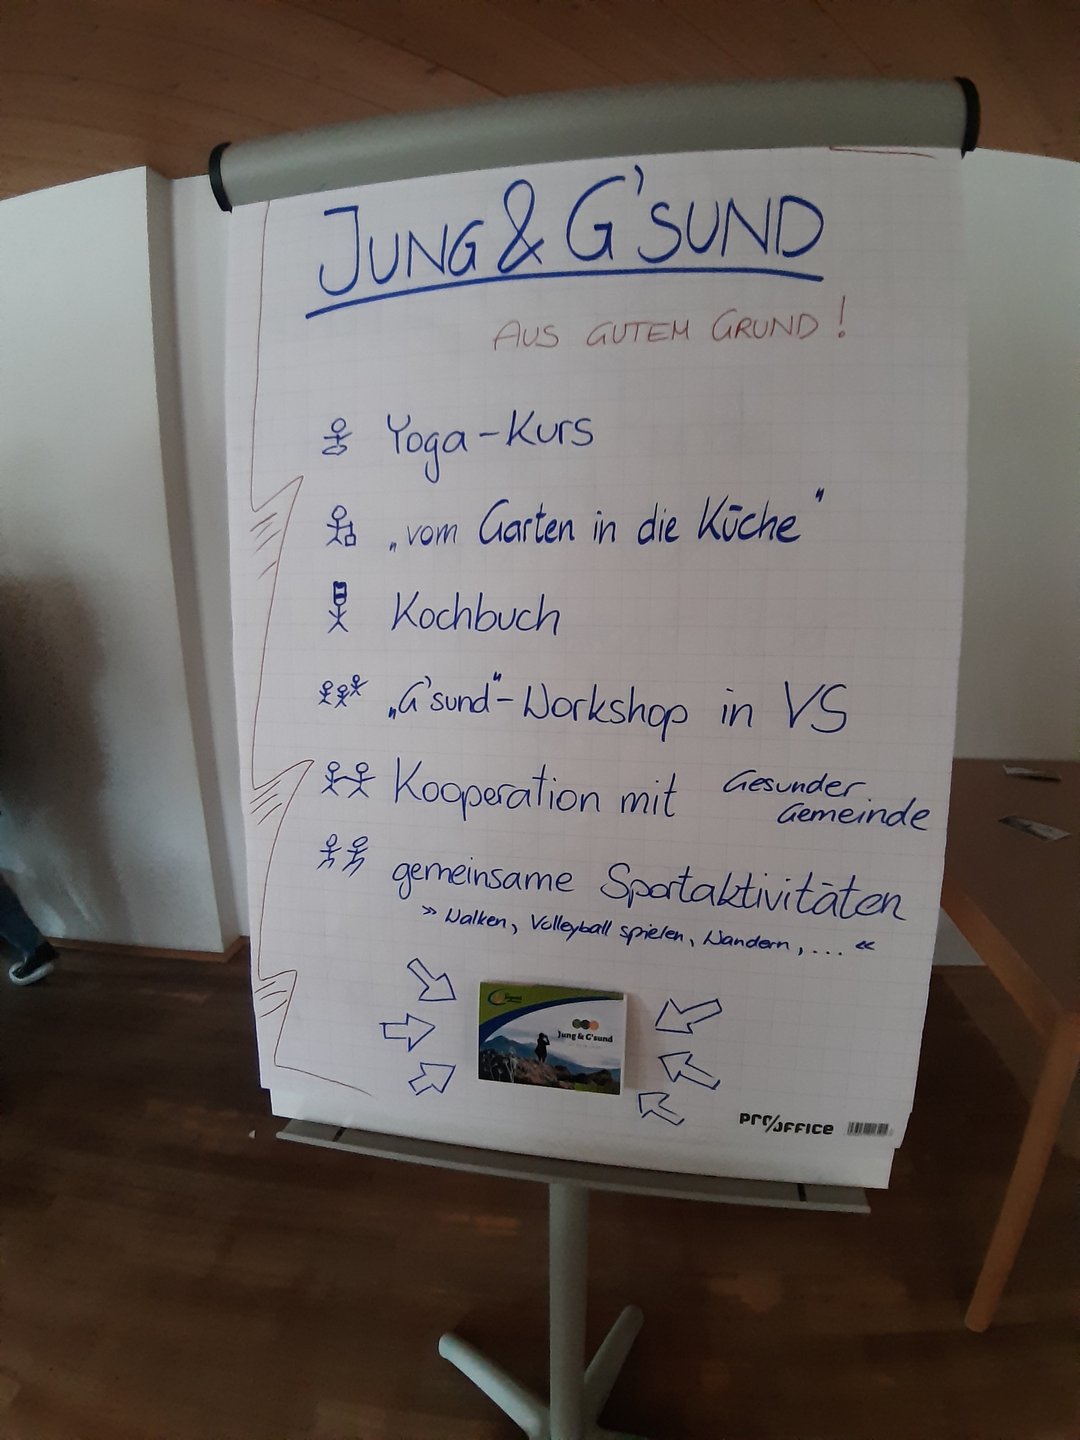 JUNG & G'SUND
AUS GUTEM GRUND!
Yoga-Kurs
„vom Garten in die Küche"
Kochbuch
„G'sund"-Workshop in VS
Kooperation mit Gesunder
Gemeinde
gemeinsame Sportaktivitäten
» Walken, Volleyball spielen, Wandern, ... «
Jung & G'sund
PRO/OFFICE